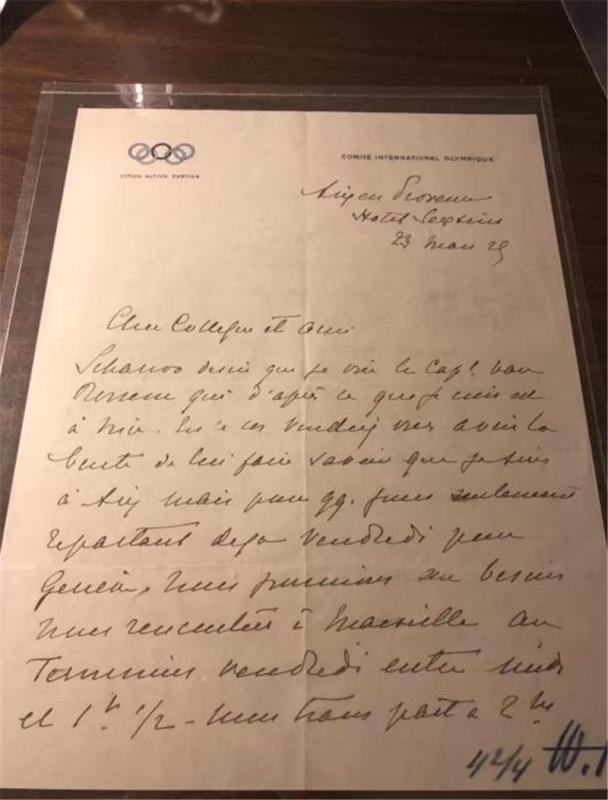 CITIUS·ALTIUS·FORTIUS
COMITÉ INTERNATIONAL OLYMPIQUE
Aix en Provence
Hotel Sextius
23 Mars 25
Cher Collègue et ami
Scharroo desire que je voie le Capt. van
Rossem qui d'après ce que je crois est
à Nice. En ce cas voudriez vous avoir la
bonté de lui faire savoir que je suis
à Aix mais pour qq. jours seulement
repartant deja vendredi pour
Genève. Nous pourrions au besoin
nous rencontrer à Marseille au
Terminus vendredi entre midi
et 1h 1/2 - mon train part à 2 hs